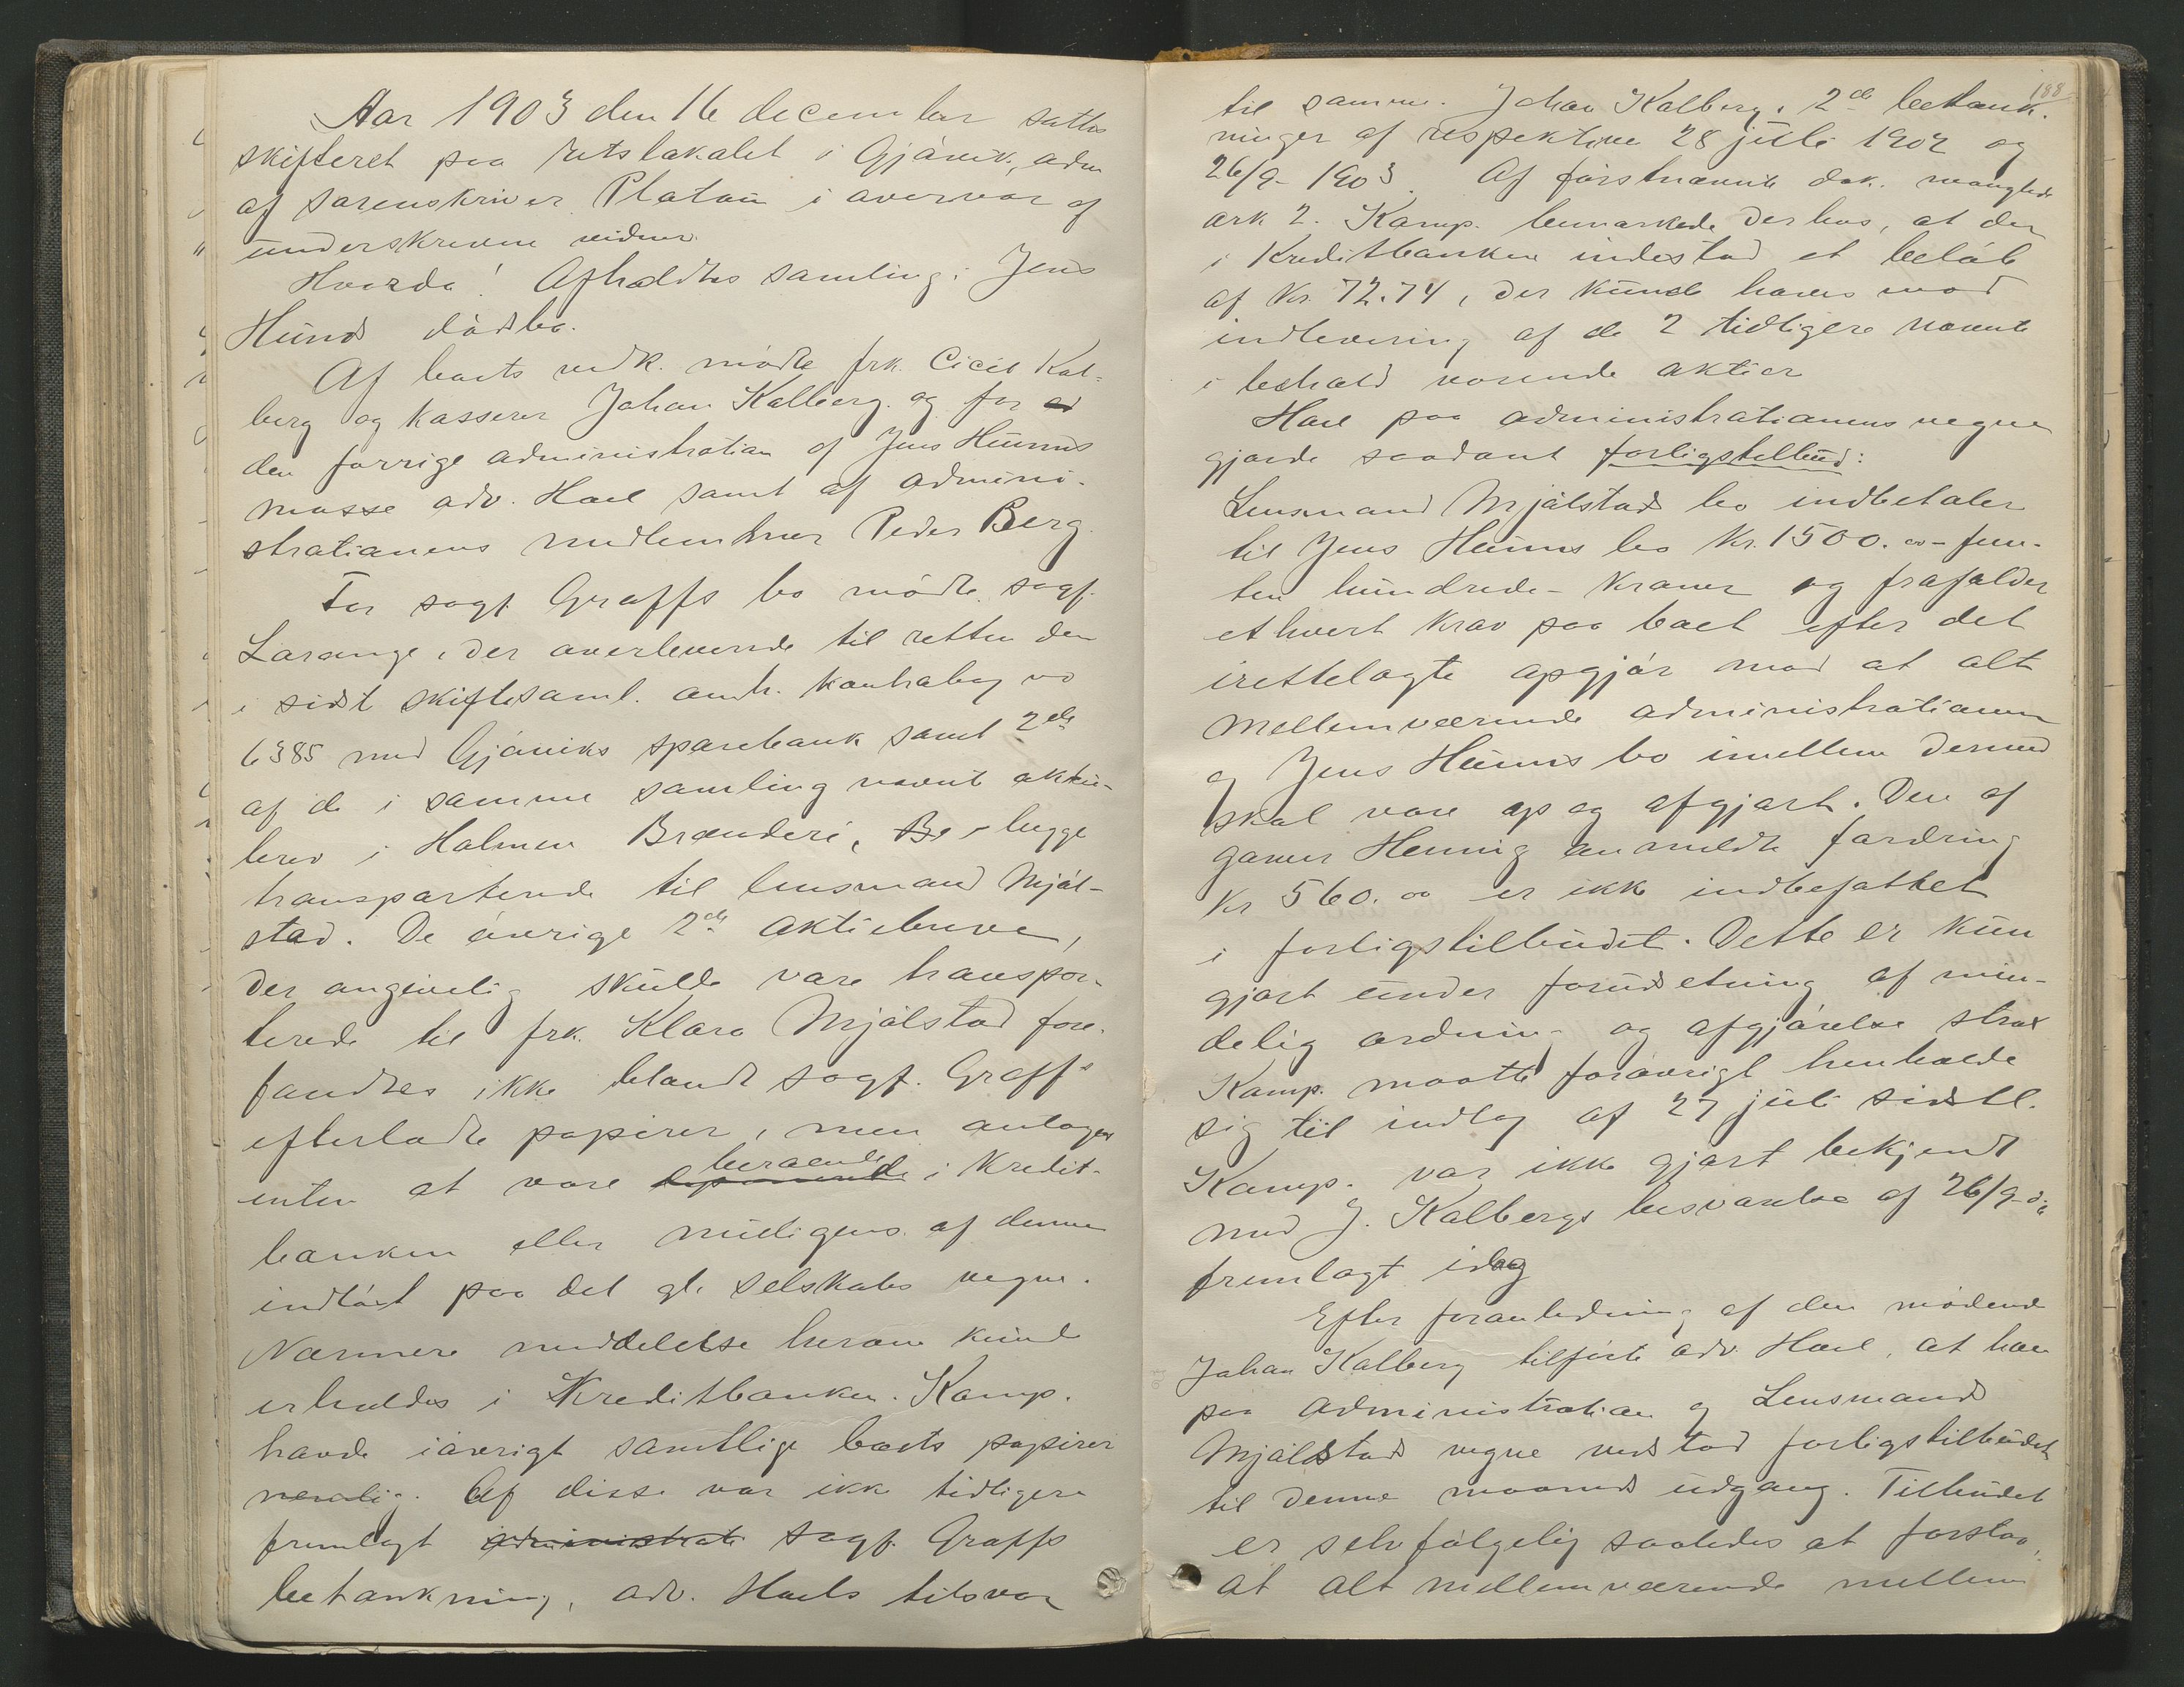 Aar 1903 den 16 december sattes
skifteret paa retslokalet i Gjøvik, adm
af sorenskriver Platou i overvær af
underskrevne vidner.
Hvorda! Afholdtes samling i Jens
Hunds dødsbo.
Af boets vedk. mødte frk. Cicil Kal-
berg og kasserer Johan Kalberg og for ad
den forrige administration af Jens Hunns
masse adv. Hoel samt af admini-
strationens medlemmer Peder Berg.
For sagf. Graffs bo mødte sagf.
Lorange, der overleverede til retten den
i sidst skiftesaml. omh. kontrabog no
6385 med Gjøviks sparebank samt 2de
af de i samme samling nævnte aktie-
brev i Holmen Brænderi, Be begge
transporterede til lensmand Mjøl-
stad. De øvrige 2de aktiebreve,
der angivelig skulde være transpor-
terede til frk. Klara Mjølstad fore-
fandtes ikke blandt sagf. Graffs
efterladte papirer, men antoges
enten at være beroende i Kredit-
banken eller muligens af denne
indløst paa det gl. selskabs vegne.
Nærmere meddelelse herom kunde
erholdes i Kreditbanken. Komp.
havde iøvrigt samtlige boets papirer
nemlig. Af disse var ikke tidligere
fremlagt administrati sagf. Graffs
betænkning, adv. Hoels tilsvar
188
til samme. Johan Kalbergs 2de betænk-
ninger af respektive 28 juli 1902 og
26/9- 1903. Af førstnævnte dok. manglede
ark 2. Komp. bemærkede derhos, at der
i Kreditbanken indestod et beløb
af Kr. 72.74, der kunde haves mod
indlevering af de 2 tidligere nævnte
i behold værende aktier
Hoel paa administrationens vegne
gjorde saadant forligstilbud:
Lensmand Mjølstads bo indbetaler
til Jens Hunns bo Kr. 1500.00 - fem-
ten hundrede - kroner og frafalder
ethvert krav paa boet efter det
irettelagte opgjør mod at alt
mellemværende administrationen
og Jens Hunns bo imellem dermed
skal være op og afgjort. Den af
garver Henning anmeldte fordring
Kr 560.00 er ikke indbefattet
i forligstilbudet. Dette er kun
gjort under forudsetning af min-
delig ordning og afgjørelse strax
Komp. maatte forøvrigt henholde
sig til indlæg af 27 juli sidstl.
Komp. var ikke gjort bekjendt
med J. Kalbergs besvarelse af 26/9 d.a.
fremlagt idag
Efter foranledning af den mødende
Johan Kalberg tilførte adv. Hoel, at han
paa administration og Lensmand
Mjølstads vegne vedstod forligstilbudet
til denne maaneds udgang. Tilbudet
er selvfølgelig saaledes at forstaa,
at alt mellemværende mellem